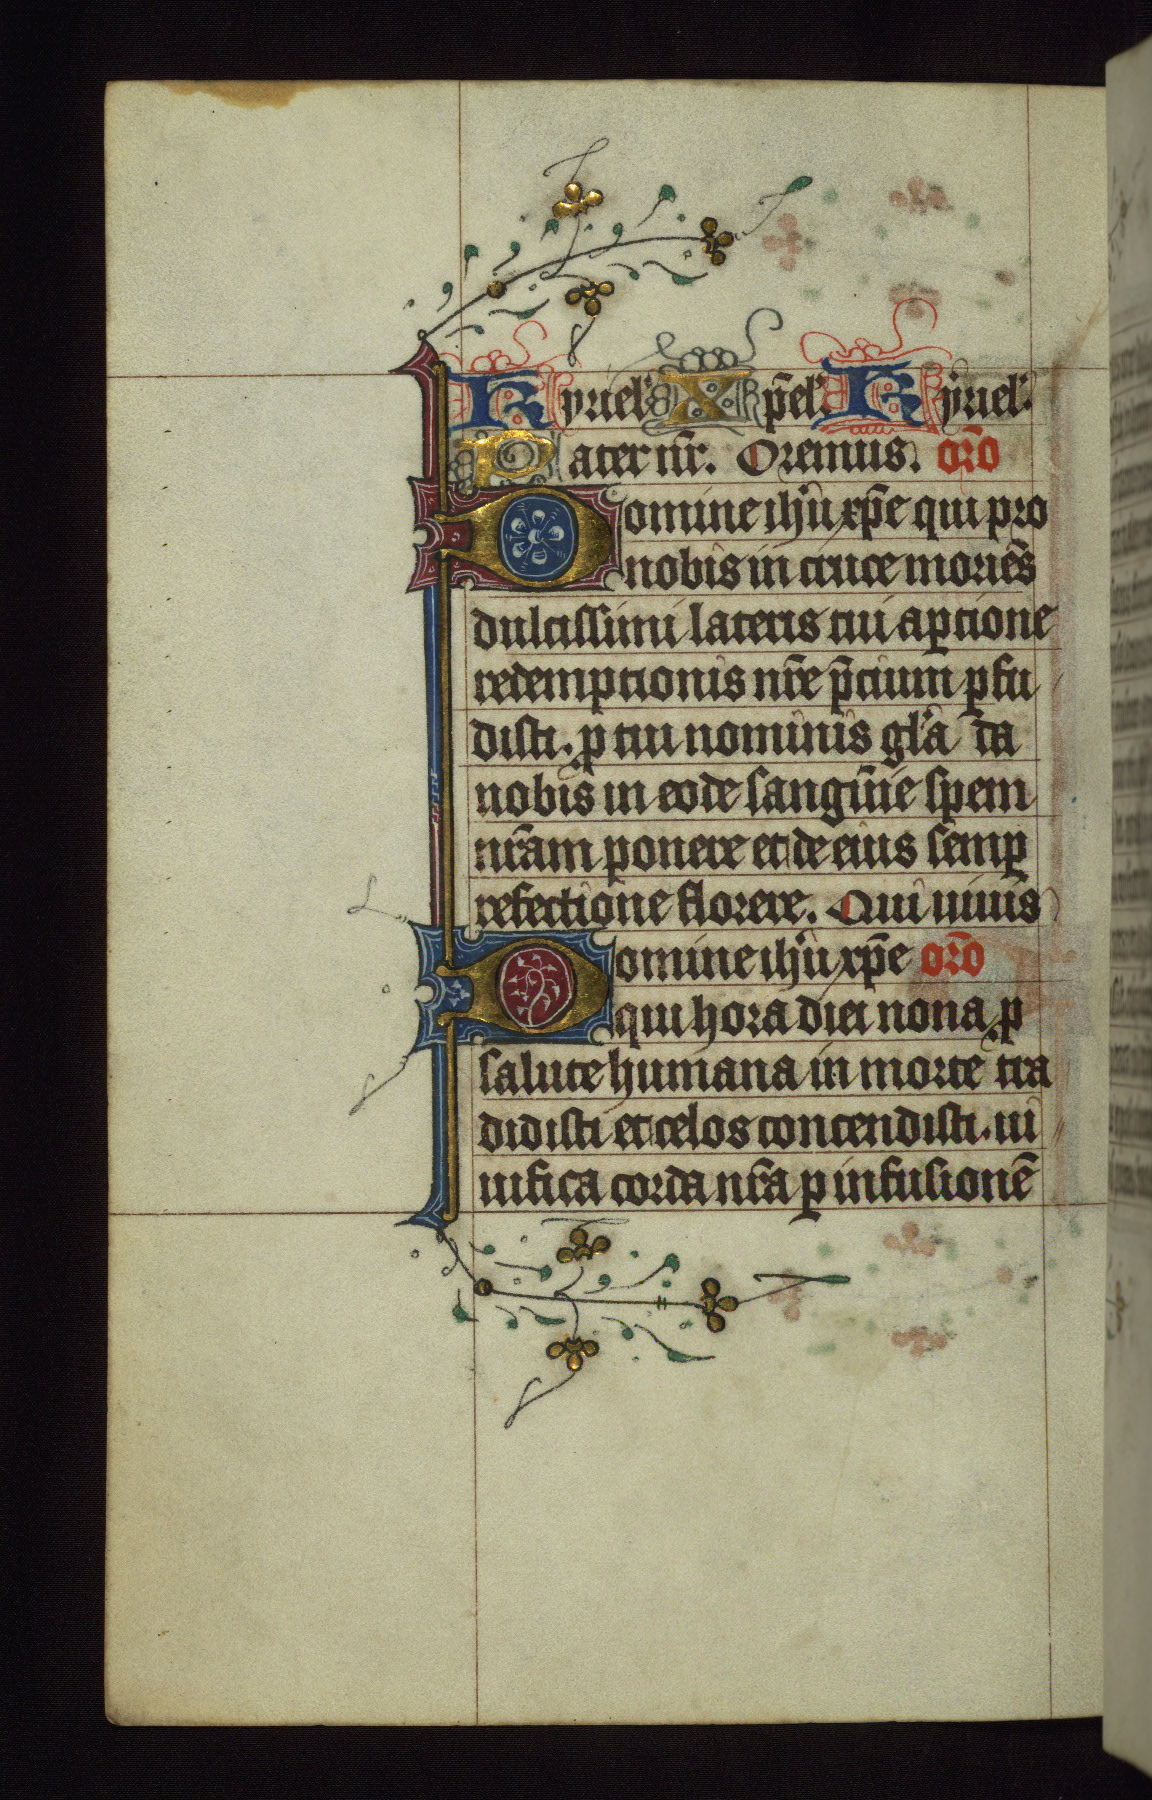 Kyriel' Xp̄el' Kyriel'
Pater nr̄. Oremus. or̄o
Domine ihū xp̄e qui pro
nobis in cruce moriēs
dulcissimi lateris tui aꝑtione
redemptionis nr̄e p̄cium ꝓfu
disti. ꝓ tui nominis gl'a da
nobis in eodē sanguīe spem
nr̄am ponere et de eius semꝑ
refectione florere. Qui uiuis
Domine ihū xp̄e or̄o
qui hora diei nona ꝓ
salute humana in mortē tra
didisti et celos concendisti. ui
uifica corda nr̄a ꝑ infusionē